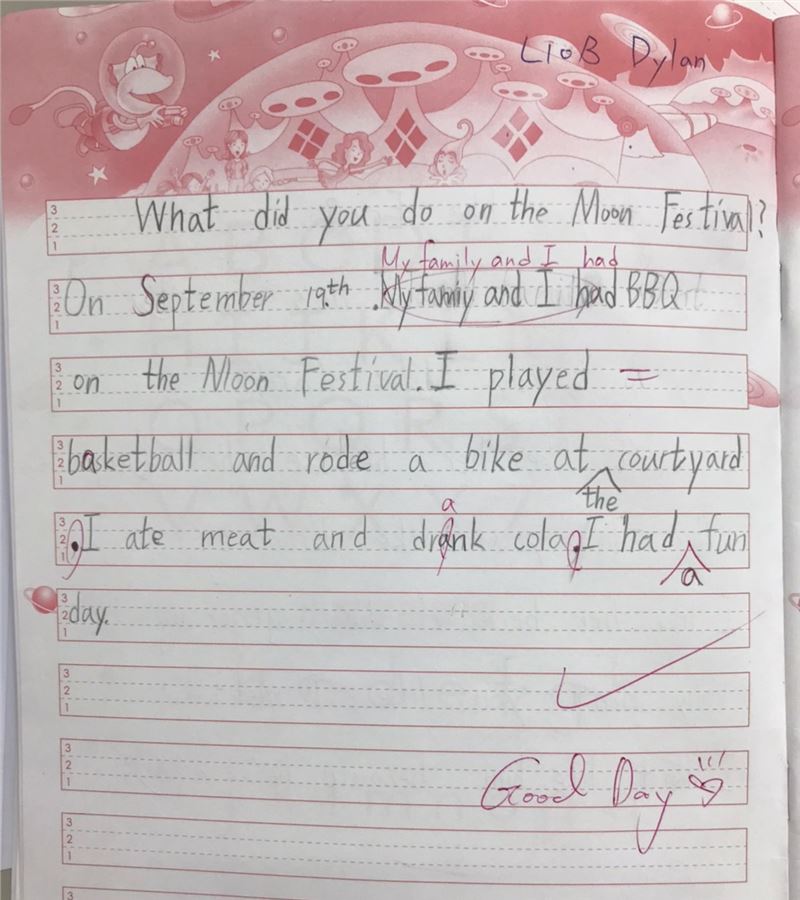 L10B Dylan
What did you do on the Moon Festival?
My family and I had
On September 19.th .My family and I had BBQ
on the Moon Festival. I played =
basketball and rode a bike at courtyard
the
a
.I ate meat and drank cola.I had fun
a
day.
Good Day